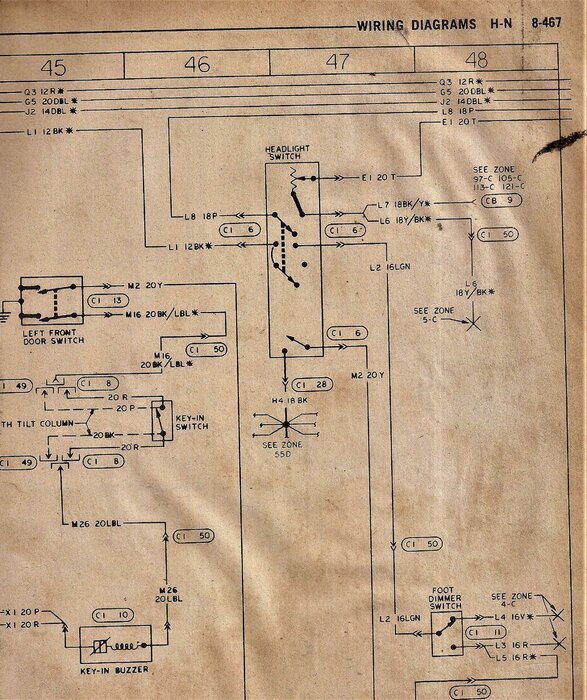 WIRING DIAGRAMS H-N 8-467
45 46 47 48
Q3 12R* Q3 12R*
G5 20DBL* G5 20DBL*
J2 14DBL* J2 14DBL*
L8 18P
L1 12BK* E1 20T
HEADLIGHT
SWITCH
SEE ZONE
97-C 105-C
113-C 121-C
E1 20T
L7 18BK/Y* C8 9
L8 18P
L6 18Y/BK*
C1 6 C1 6 C1 50
L1 12BK*
L2 16LGN
M2 20Y
L6
18Y/BK*
C1 13
M16 20BK/LBL*
SEE ZONE
5-C
LEFT FRONT
DOOR SWITCH
C1 6
C1 50
M16
20BK/LBL*
M2 20Y
1 49 C1 8
C1 28
20R
20P
H4 18BK
TH TILT COLUMN
KEY-IN
SWITCH
20BK
SEE ZONE
55D
20R
C1 49 C1 8
M26 20LBL
C1 50
C1 50
M26
20LBL
FOOT
DIMMER
SWITCH
SEE ZONE
4-C
X1 20P
C1 10
L2 16LGN L4 16V*
X1 20R
C1 11
L3 16R
L5 16R*
KEY-IN BUZZER
C1 50